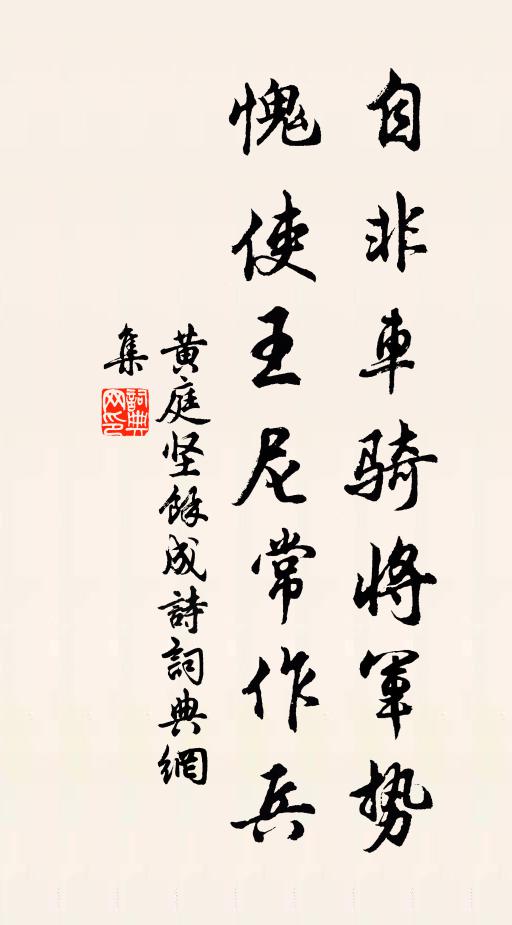 自非車騎將軍勢
愧使王尼常作兵
黄庭坚餘成詩詞典網
集
詞典
网印